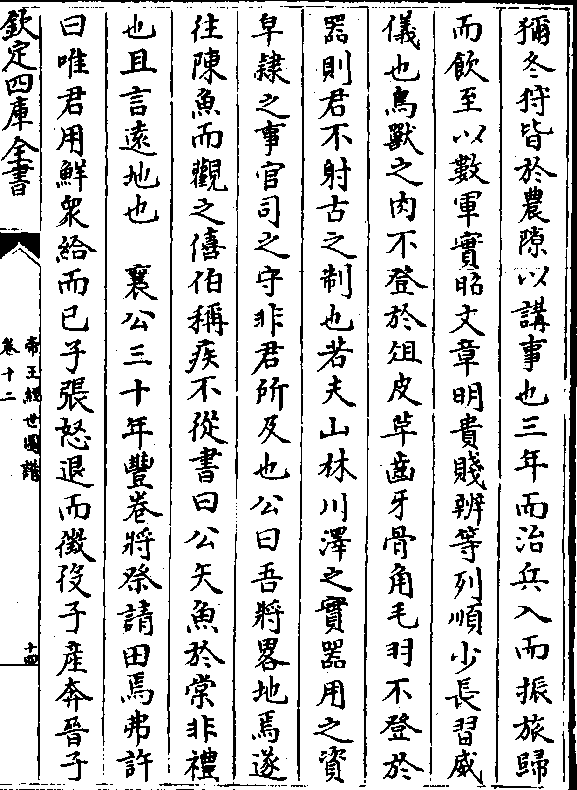 獮冬狩皆於農隙以講事也三年而治兵入而振旅歸
而飲至以數軍實昭文章明貴賤辨等列順少長習威
儀也鳥獸之肉不登於俎皮革齒牙骨角毛羽不登於
器則君不射古之制也若夫山林川澤之實器用之資
皁隸之事官司之守非君所及也公曰吾將畧地焉遂
往陳魚而觀之僖伯稱疾不從書曰公矢魚於棠非禮
也且言遠地也　襄公三十年豐卷將祭請田焉弗許
曰唯君用鮮衆給而已子張怒退而徵役子產奔晉子
欽定四庫全書
帝王經世圖譜
卷十二
十四